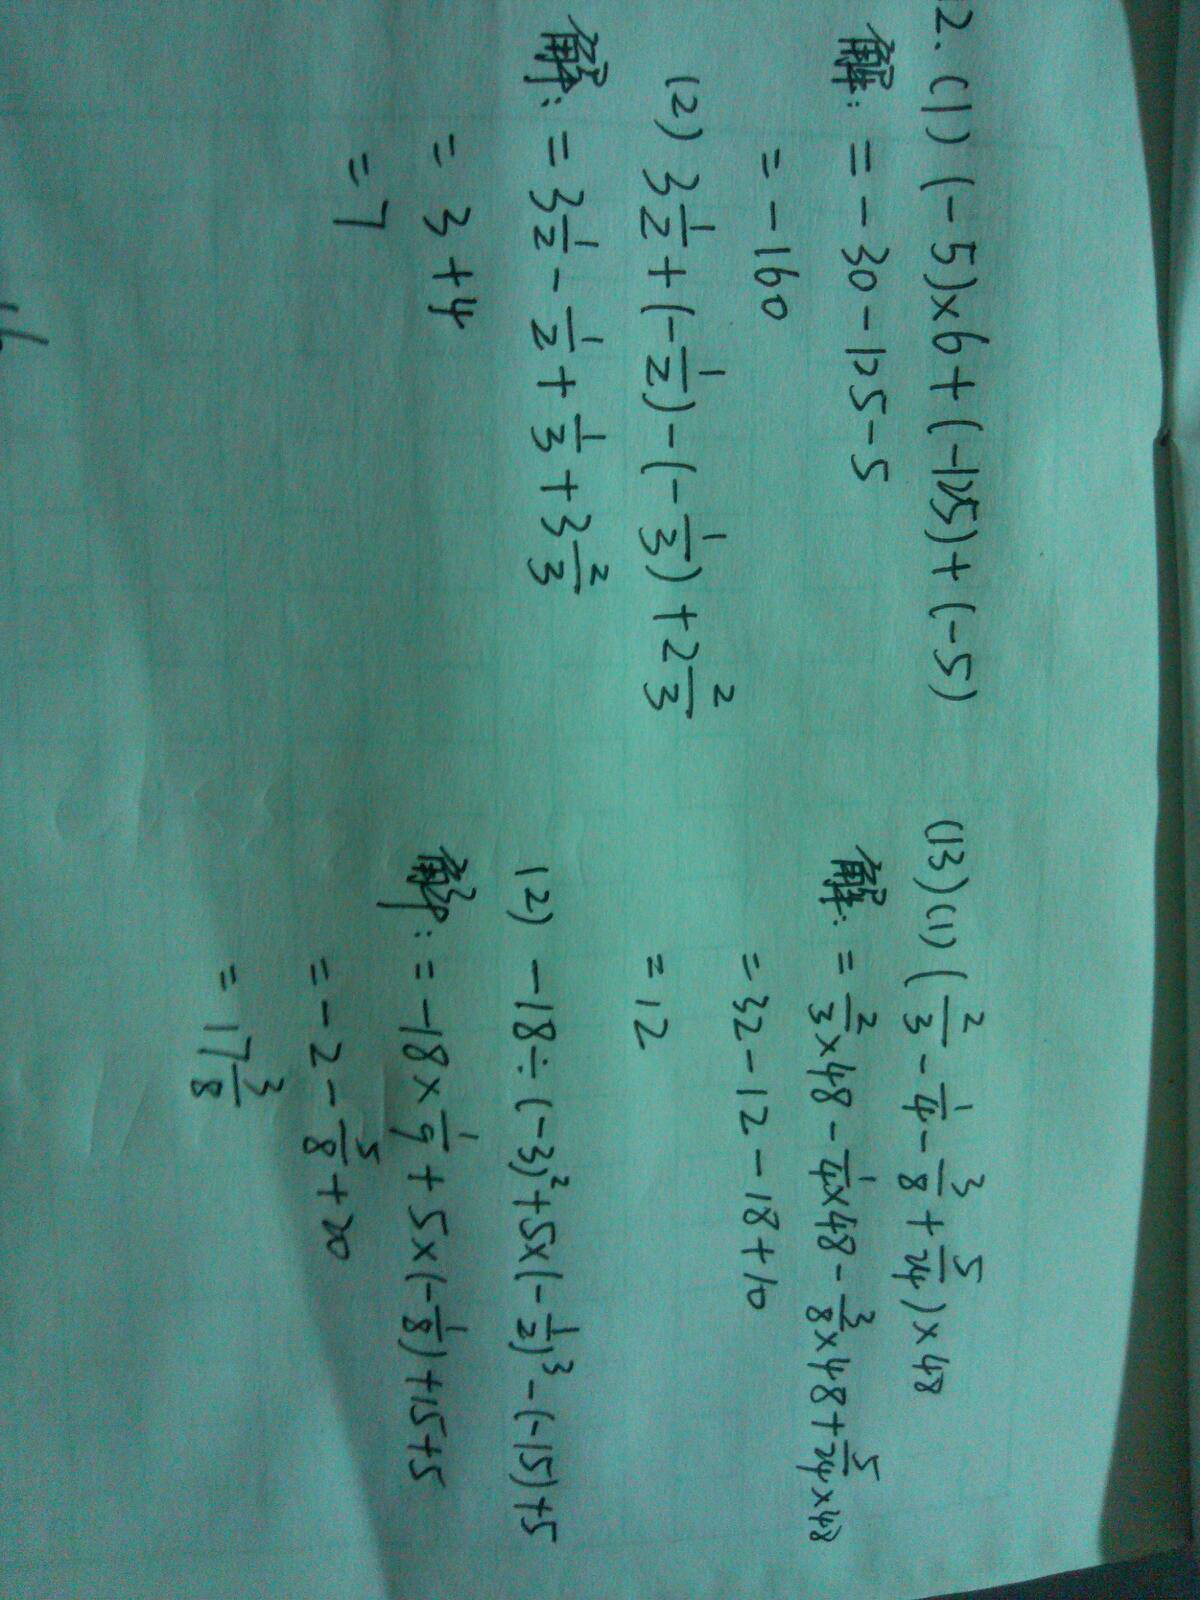 12. (1) (-5)×6+(-125)+(-5)
解: = -30-125-5
= -160
(2) 3 1/2 + (-1/2) - (-1/3) + 2 2/3
解: = 3 1/2 - 1/2 + 1/3 + 3 2/3
= 3+4
= 7
(13) (1) (2/3 - 1/4 - 3/8 + 5/24)×48
解: = 2/3×48 - 1/4×48 - 3/8×48 + 5/24×48
= 32-12-18+10
= 12
(2) -18÷(-3)²+5×(-1/2)³-(-15)+5
解: = -18×1/9+5×(-1/8)+15+5
= -2-5/8+20
= 17 3/8